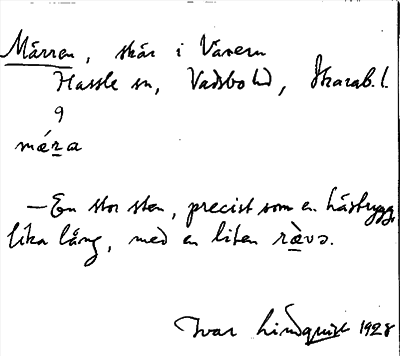 Märren, skär i Vänern
Hassle sn, Vadsbo hd, Skarab. l.
9
mǽṟa
— En stor sten, precist som en hästrygg,
lika lång, med en liten ræ̀və.
Ivar Lindquist 1928